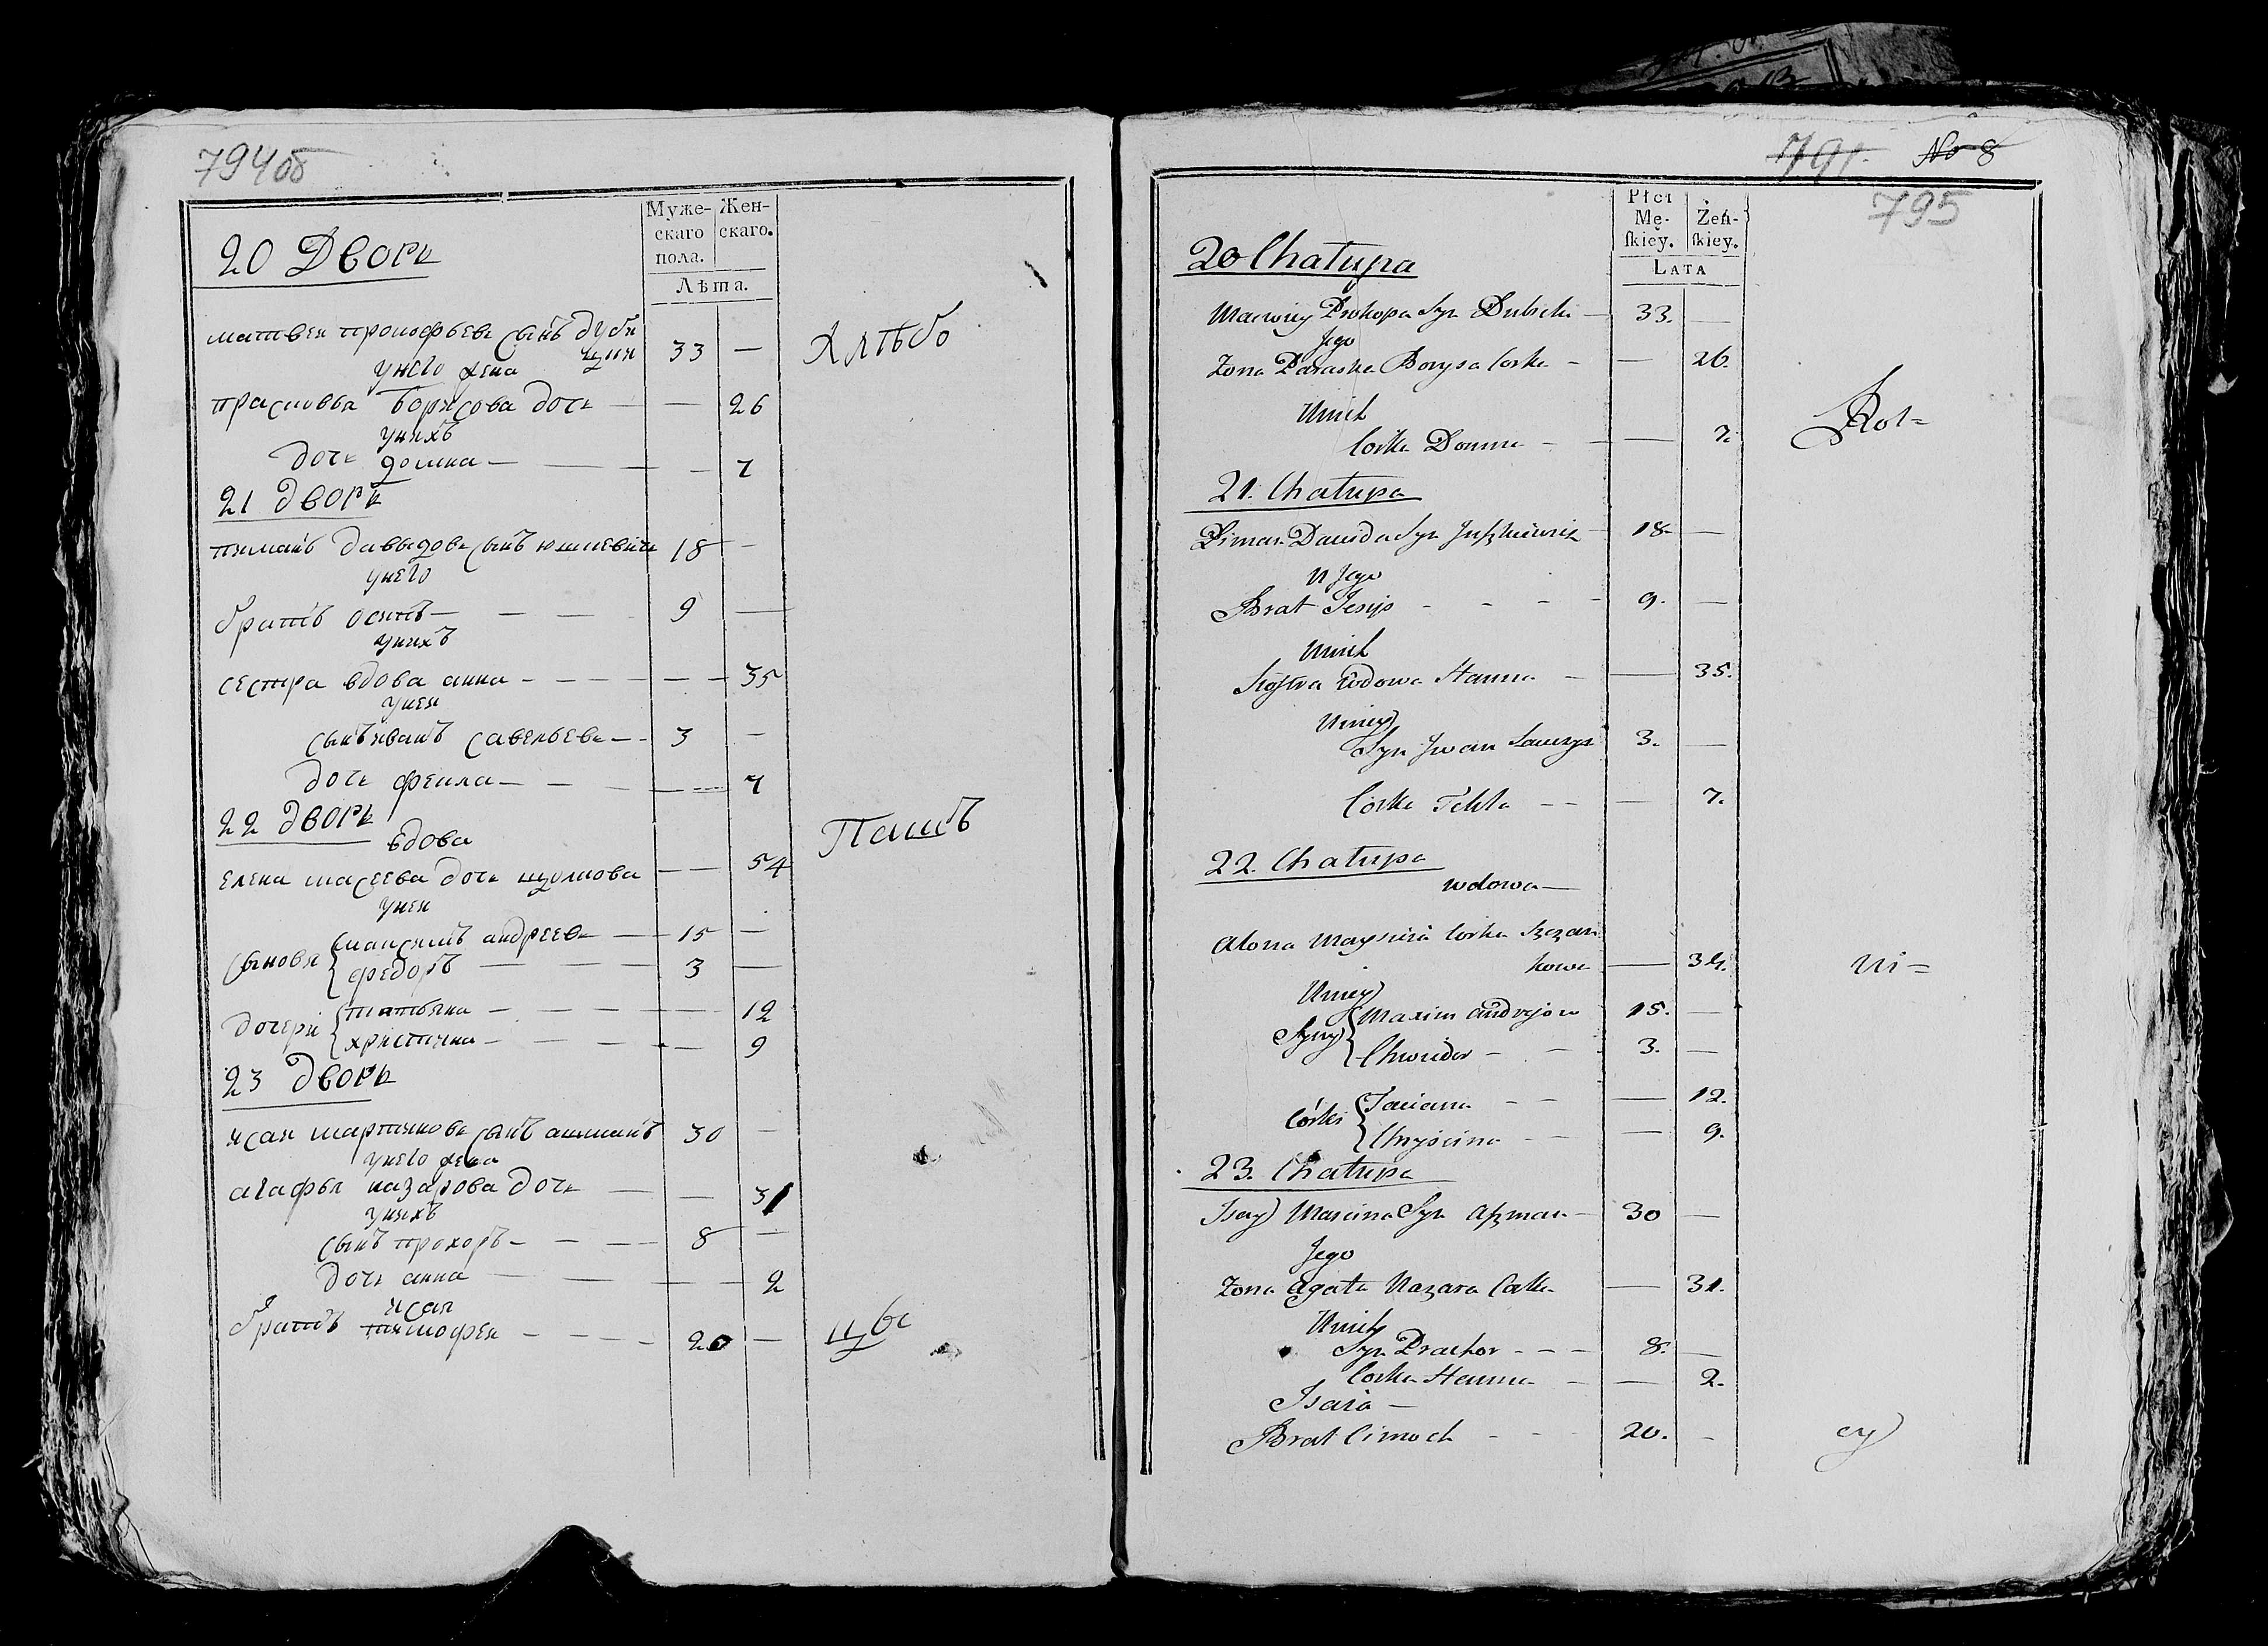 794об
Муже- Жен-
скаго скаго.
пола.
Лѣта.
20 Дворъ
матвеи прокофьевъ сынъ дуби
цки 33 —
унего жена
прасковья борисова дочь — — 26
унихъ
дочь домна — — — — 7
21 дворъ
пиманъ давыдовъ сынъ юшкевичъ 18 —
унего
братъ осипъ — — — 9 —
унихъ
сестра вдова анна — — — — — 35
унеи
сынъ иванъ савельевъ — 3 —
дочь фекла — — — — 7
22 дворъ
вдова
елена масеева дочь щолкова — — 54
унеи
сыновя максимъ андреевъ — 15 —
федоръ — — — 3 —
дочери татьяна — — — — 12
христина — — — — 9
23 дворъ
исаи мартиновъ сынъ ашманъ 30 —
унего жена
агафья назарова дочь — — 31
унихъ
сынъ прохоръ — — — 8 —
дочь анна — — — 2
исая
братъ тимофеи — — — 20 —
Хлѣбо
Пашъ
цы
791. No 8
795
Płci
Mę- Żeń-
ſkiey. ſkiey.
LATA
20 Chatupa
Maciey Prokopa Syn Dubicki — 33. —
Jego
Zona Paraska Borysa Corka — — 26.
Unich
Corka Domna — — 7.
21. Chatupa
Piman Dawida Syn Juszkiewicz 18. —
U Jego
Brat Josip - - - - 9. —
Unich
Siostra Wdowa Hanna — — 35.
Uniey
Syn Jwan Sawayi 3. —
Corka Tekla — — — 7.
22. Chatupa
wdowa —
Alona Maysieia Corka Szczau
kowa — 34.
Uniey
Syny Maxim Andrejow 15. —
Chwiedor — — 3. —
Córki Taciana — — — 12.
Chryścina — — — 9.
23. Chatupa
Isay Marcina Syn Aszman — 30 —
Jego
Zona Agata Nazara Corka — 31.
Unich
Syn Prachor — — — 8. —
Corka Hanna — — 2.
Isaia —
Brat Cimoch - - - 20. -
Rol=
ni=
cy